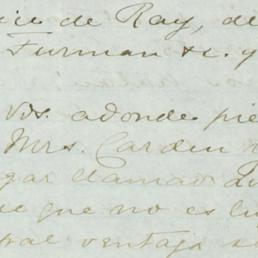 de Ray, de
Furman &c. y
Vds. adonde pie
Mrs. Carden
gar llamado
ue que no es
ventaja